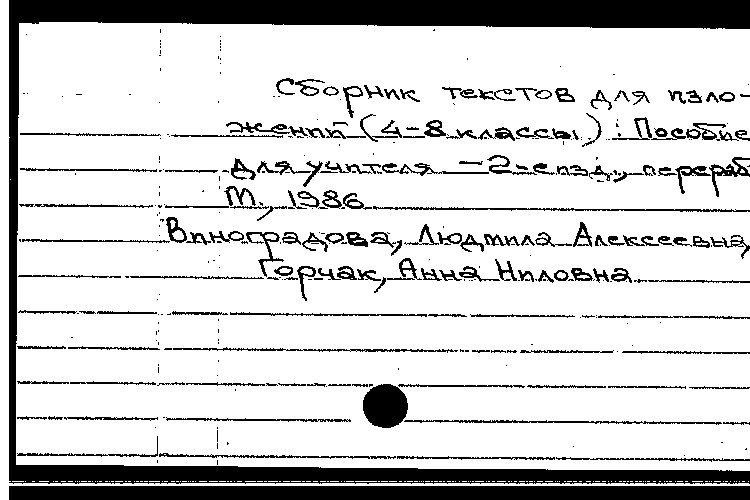 Сборник текстов для изло-
жений (4-8 классы) : Пособие
для учителя - 2-е изд., перераб
М., 1986
Виноградова, Людмила Алексеевна,
Горчак, Анна Ниловна